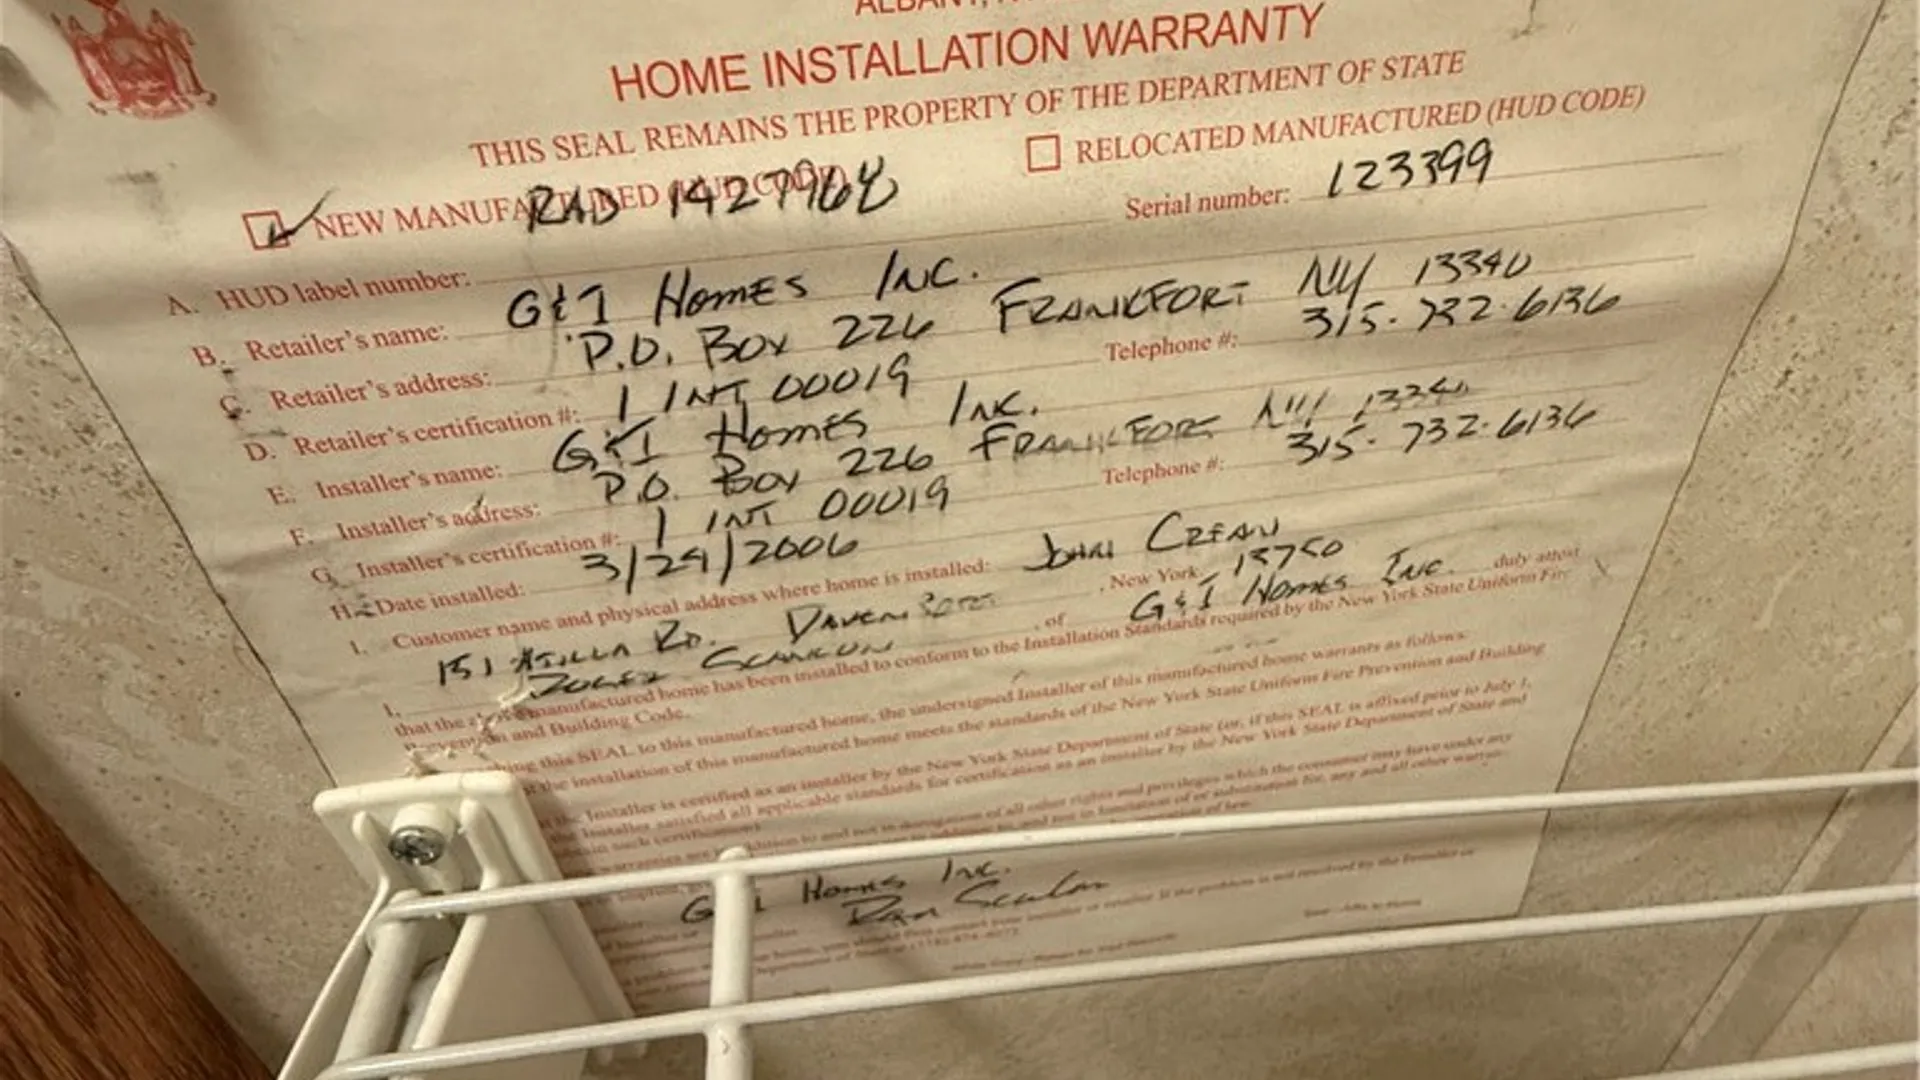 HOME INSTALLATION WARRANTY
THIS SEAL REMAINS THE PROPERTY OF THE DEPARTMENT OF STATE
NEW MANUFACTURED (HUD CODE) RELOCATED MANUFACTURED (HUD CODE)
A. HUD label number: RAD 1427968 Serial number: 123399
B. Retailer's name: G&I HOMES INC.
C. Retailer's address: P.O. BOX 226 FRANKFORT NY 13340
D. Retailer's certification #: 1 INT 00019 Telephone #: 315-732-6136
E. Installer's name: G&I HOMES INC.
F. Installer's address: P.O. BOX 226 FRANKFORT NY 13340
G. Installer's certification #: 1 INT 00019 Telephone #: 315-732-6136
H. Date installed: 3/29/2006
I. Customer name and physical address where home is installed: JOHN CREAN
151 RD. , New York
I, , of G&I HOMES INC. duly attest
that the manufactured home has been installed to conform to the Installation Standards required by the New York State Uniform Fire
Prevention and Building Code.
this SEAL to this manufactured home, the undersigned Installer of this manufactured home warrants as follows:
the installation of this manufactured home meets the standards of the New York State Uniform Fire Prevention and Building
the Installer is certified as an installer by the New York State Department of State (or, if this SEAL is affixed prior to July 1,
the Installer satisfied all applicable standards for certification as an installer by the New York State Department of State and
such certification)
in addition to and not in derogation of all other rights and privileges which the consumer may have under any
G&I HOMES INC.